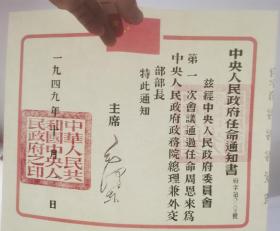 中央人民政府任命通知書
府字第
號
茲經中央人民政府委員會
第一次會議通過任命周恩來爲
中央人民政府政務院總理兼外交
部部長
特此通知
主席
毛澤東
一九四九年十月
日
中華人民共
和國中央人
民政府之印